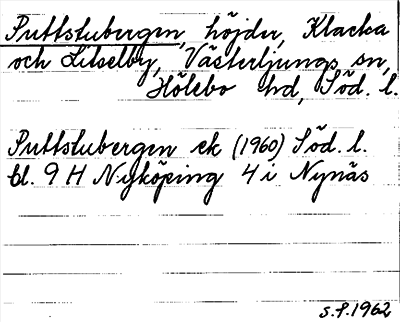 Puttstubergen, höjder, Klacka
och Litselby, Västerljungs sn,
Hölebo hd, Söd. l.
Puttstubergen ek (1960) Söd. l.
bl. 9 H Nyköping 4 i Nynäs
S.P. 1962